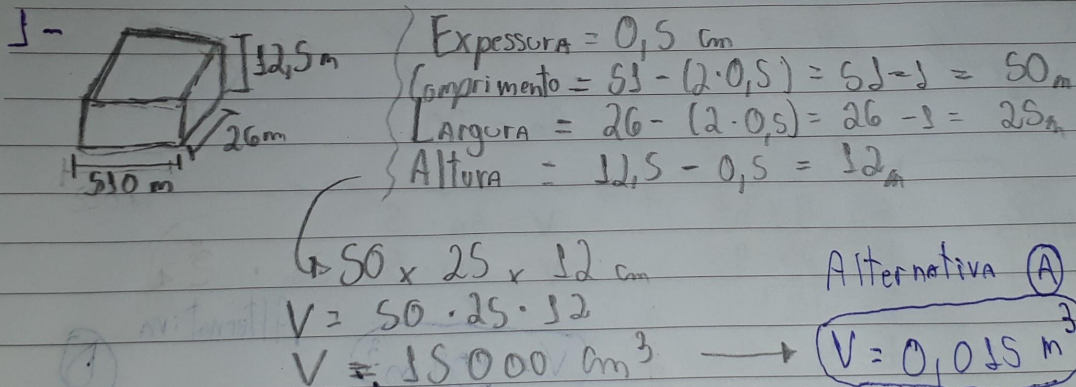 1-
12,5m
26m
510 m
Expessura = 0,5 cm
Comprimento = 51 - (2·0,5) = 51-1 = 50m
Largura = 26 - (2·0,5) = 26 - 1 = 25m
Altura = 12,5 - 0,5 = 12m
50 x 25 x 12 cm
V = 50 · 25 · 12
V = 15000 cm³ → V = 0,015 m³
Alternativa A